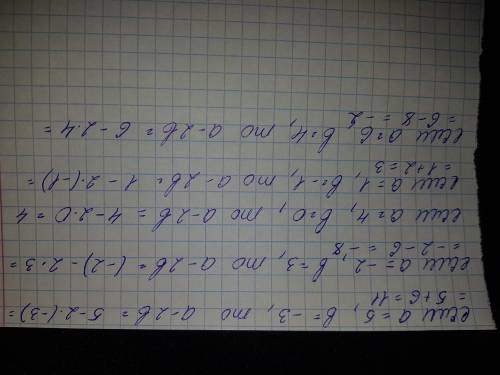 если a = 5, b = -3, то a-2b = 5-2·(-3) =
= 5+6 = 11
если a = -2, b = 3, то a-2b = (-2)-2·3 =
= -2-6 = -8
если a = 4, b = 0, то a-2b = 4-2·0 = 4
если a = 1, b = -1, то a-2b = 1-2·(-1) =
= 1+2 = 3
если a = 6, b = 4, то a-2b = 6-2·4 =
= 6-8 = -2